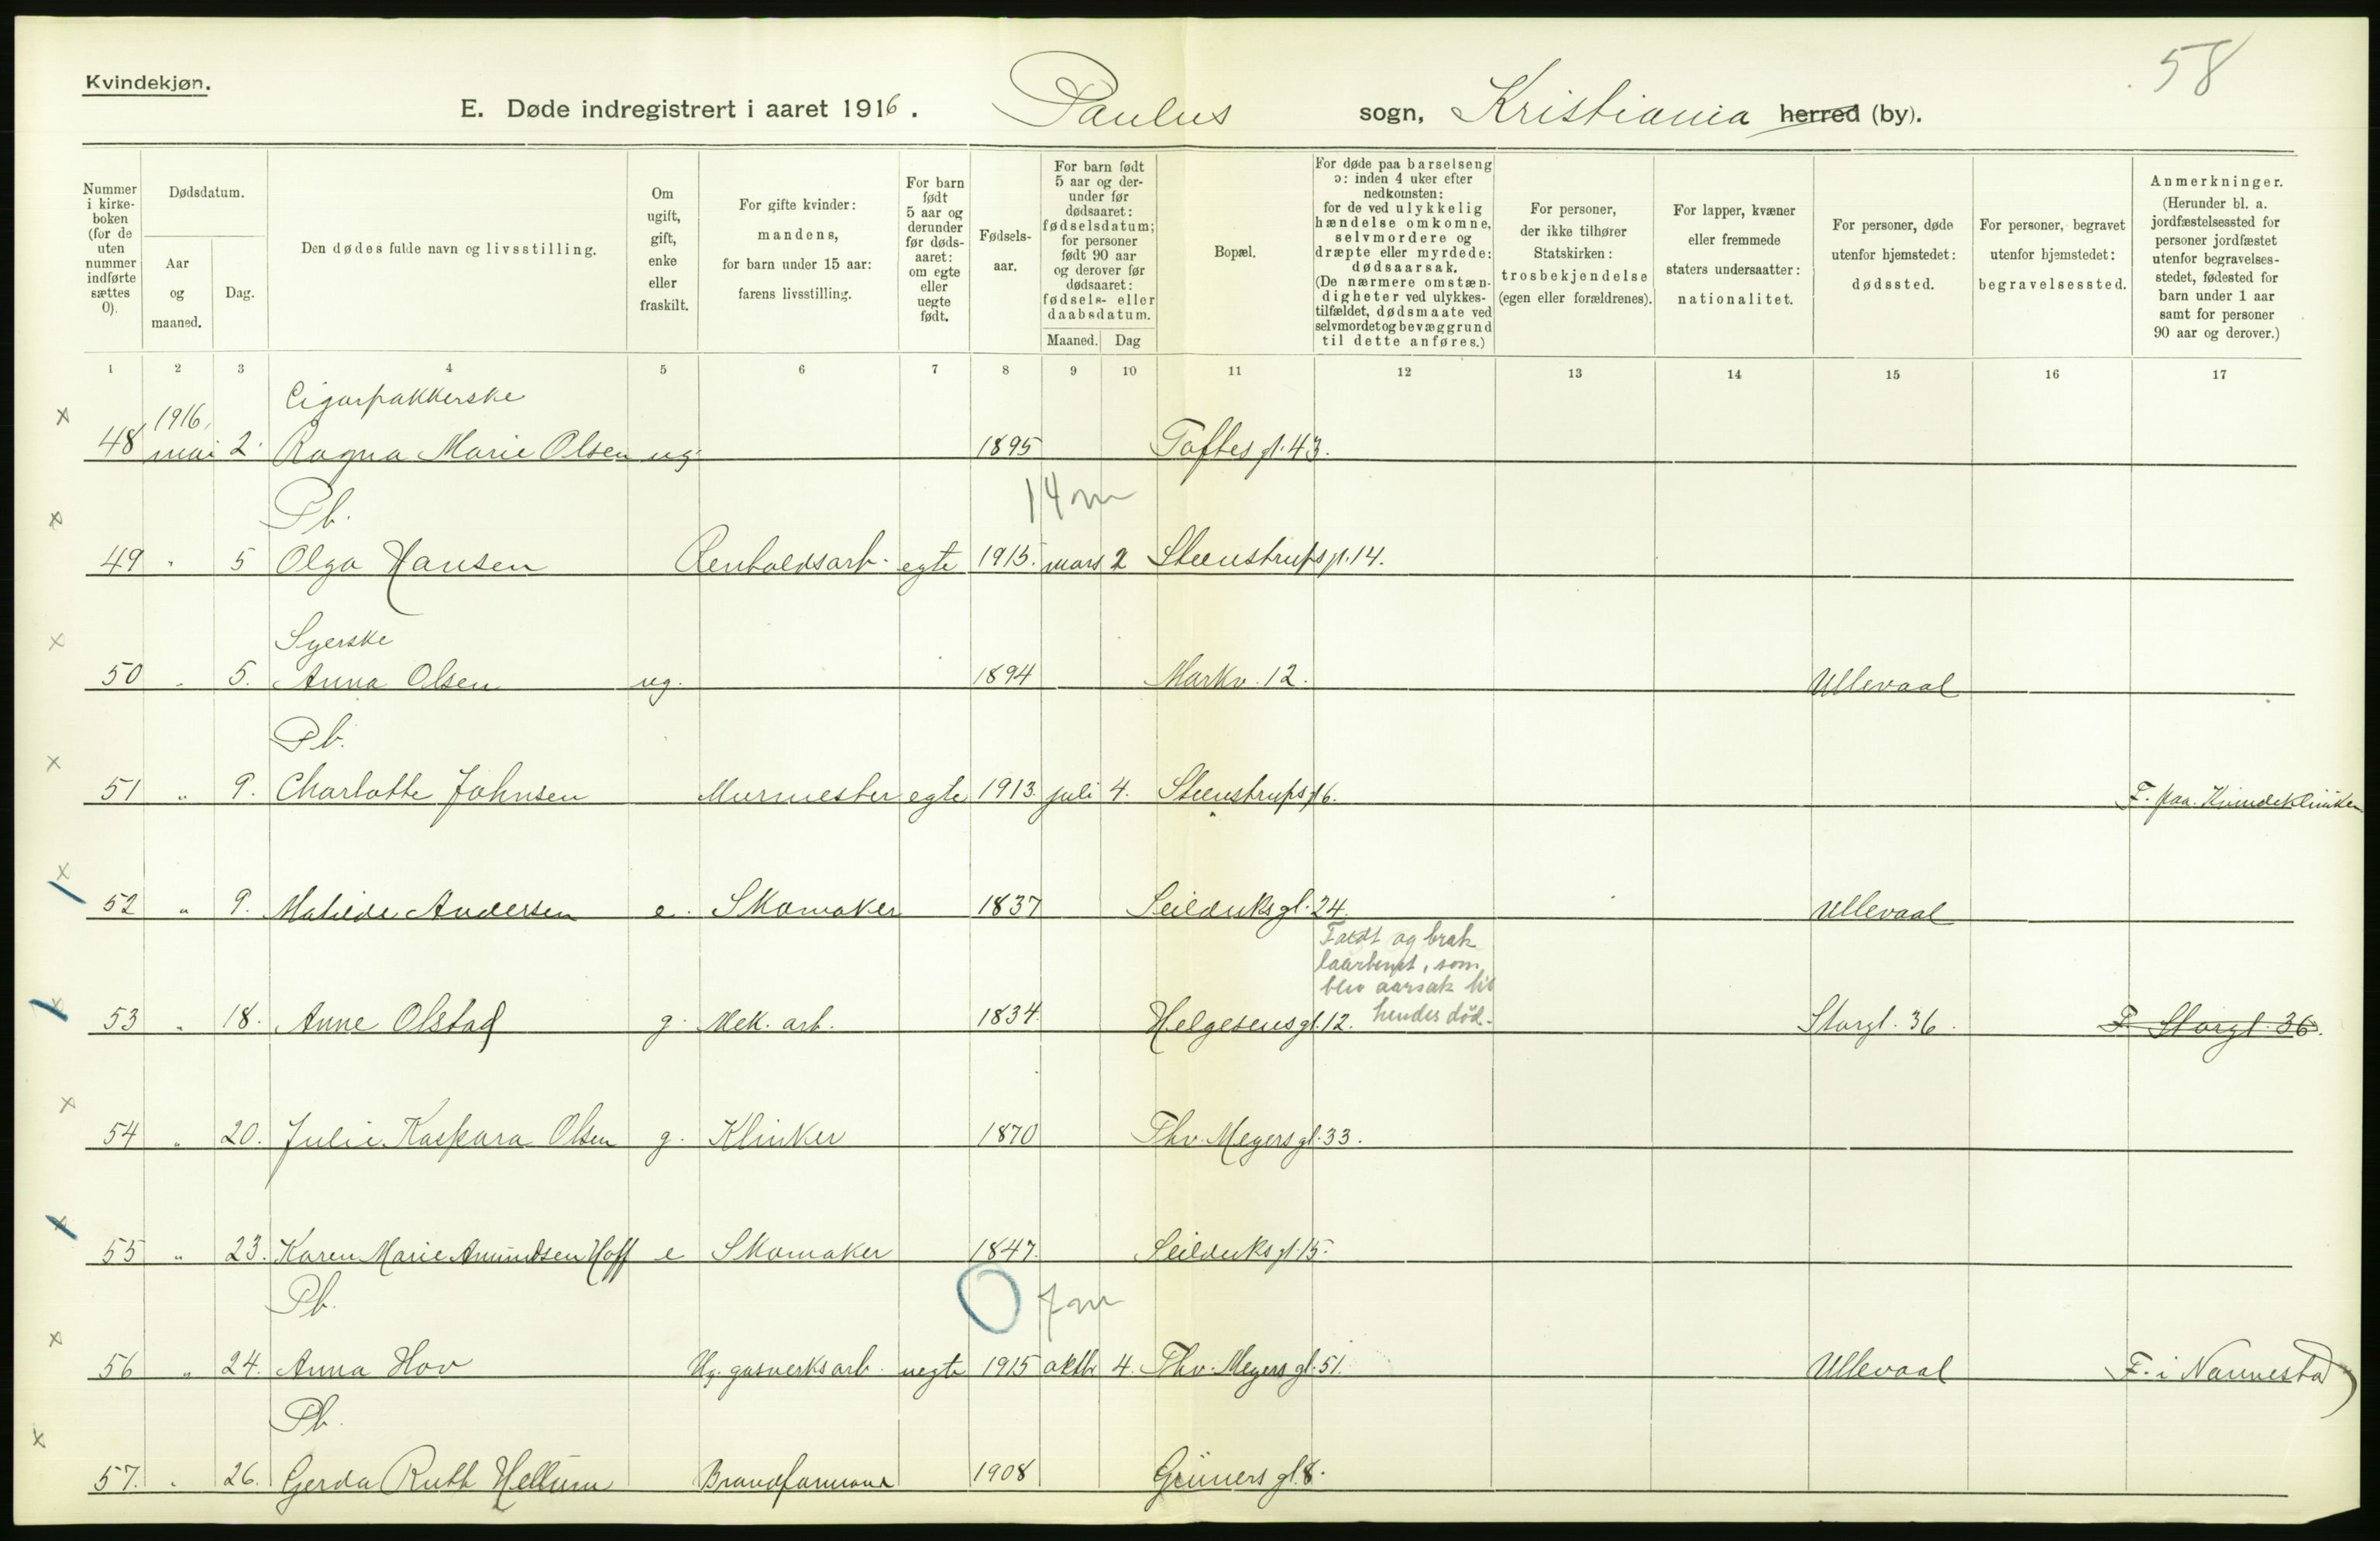 58
Kvindekjøn.
E. Døde indregistrert i aaret 1916. Paulus sogn, Kristiania herred (by).
Nummer i kirke-boken (for de uten nummer indførte sættes 0).
Dødsdatum.
Aar og maaned.
Dag.
Den dødes fulde navn og livsstilling.
Om ugift, gift, enke eller fraskilt.
For gifte kvinder: mandens, for barn under 15 aar: farens livsstilling.
For barn født 5 aar og derunder før døds-aaret: om egte eller uegte født.
Fødsels-aar.
For barn født 5 aar og der-under før dødsaaret: fødselsdatum; for personer født 90 aar og derover før dødsaaret: fødsels- eller daabsdatum.
Maaned. Dag
Bopæl.
For døde paa barselseng ɔ: inden 4 uker efter nedkomsten: for de ved ulykkelig hændelse omkomne, selvmordere og dræpte eller myrdede: dødsaarsak. (De nærmere omstæn-digheter ved ulykkes-tilfældet, dødsmaate ved selvmordet og bevæggrund til dette anføres.)
For personer, der ikke tilhører Statskirken: trosbekjendelse (egen eller forældrenes).
For lapper, kvæner eller fremmede staters undersaatter: nationalitet.
For personer, døde utenfor hjemstedet: dødssted.
For personer, begravet utenfor hjemstedet: begravelsessted.
Anmerkninger. (Herunder bl. a. jordfæstelsessted for personer jordfæstet utenfor begravelses-stedet, fødested for barn under 1 aar samt for personer 90 aar og derover.)
1 2 3 4 5 6 7 8 9 10 11 12 13 14 15 16 17
Cigarpakkerske
x 1916,
48 mai 2. Ragna Marie Olsen ug. 1895 Toftes gt. 43.
14 m
x Pb.
49 " 5 Olga Hansen Renholdsarb. egte 1915. mars 2 Steenstrups gt. 14.
x Syerske
50 " 5. Anna Olsen ug. 1894 Markv. 12. Ullevaal
x Pb.
51 " 9. Charlotte Johnsen Murmester egte 1913. juli 4. Steenstrups gt 6. F. paa Kvindeklinikken
x
52 " 9. Matilde Andersen e. Skomaker 1837 Seilduksgt. 24. Ullevaal
Faldt og brak
laarbenet, som
blev aarsak til
hendes død.
x
53 " 18. Anne Olstad g. Mek. arb. 1834. Helgesens gt. 12. Storgt. 36. F. Storgt. 36.
x
54 " 20. Julie Kaspara Olsen g. Klinker 1870 Thv. Meyers gt. 33.
x
55 " 23. Karen Marie Amundsen Hoff e Skomaker 1847. Seilduksgt. 15.
Pb. 0 7 m
x
56 " 24. Anna Hov Ug. gasverksarb. uegte 1915 oktbr 4. Thv. Meyers gt. 51. Ullevaal F. i Nannestad
Pb.
x
57. " 26. Gerda Ruth Hellum Brandformand 1908 Grüners gt. 8.